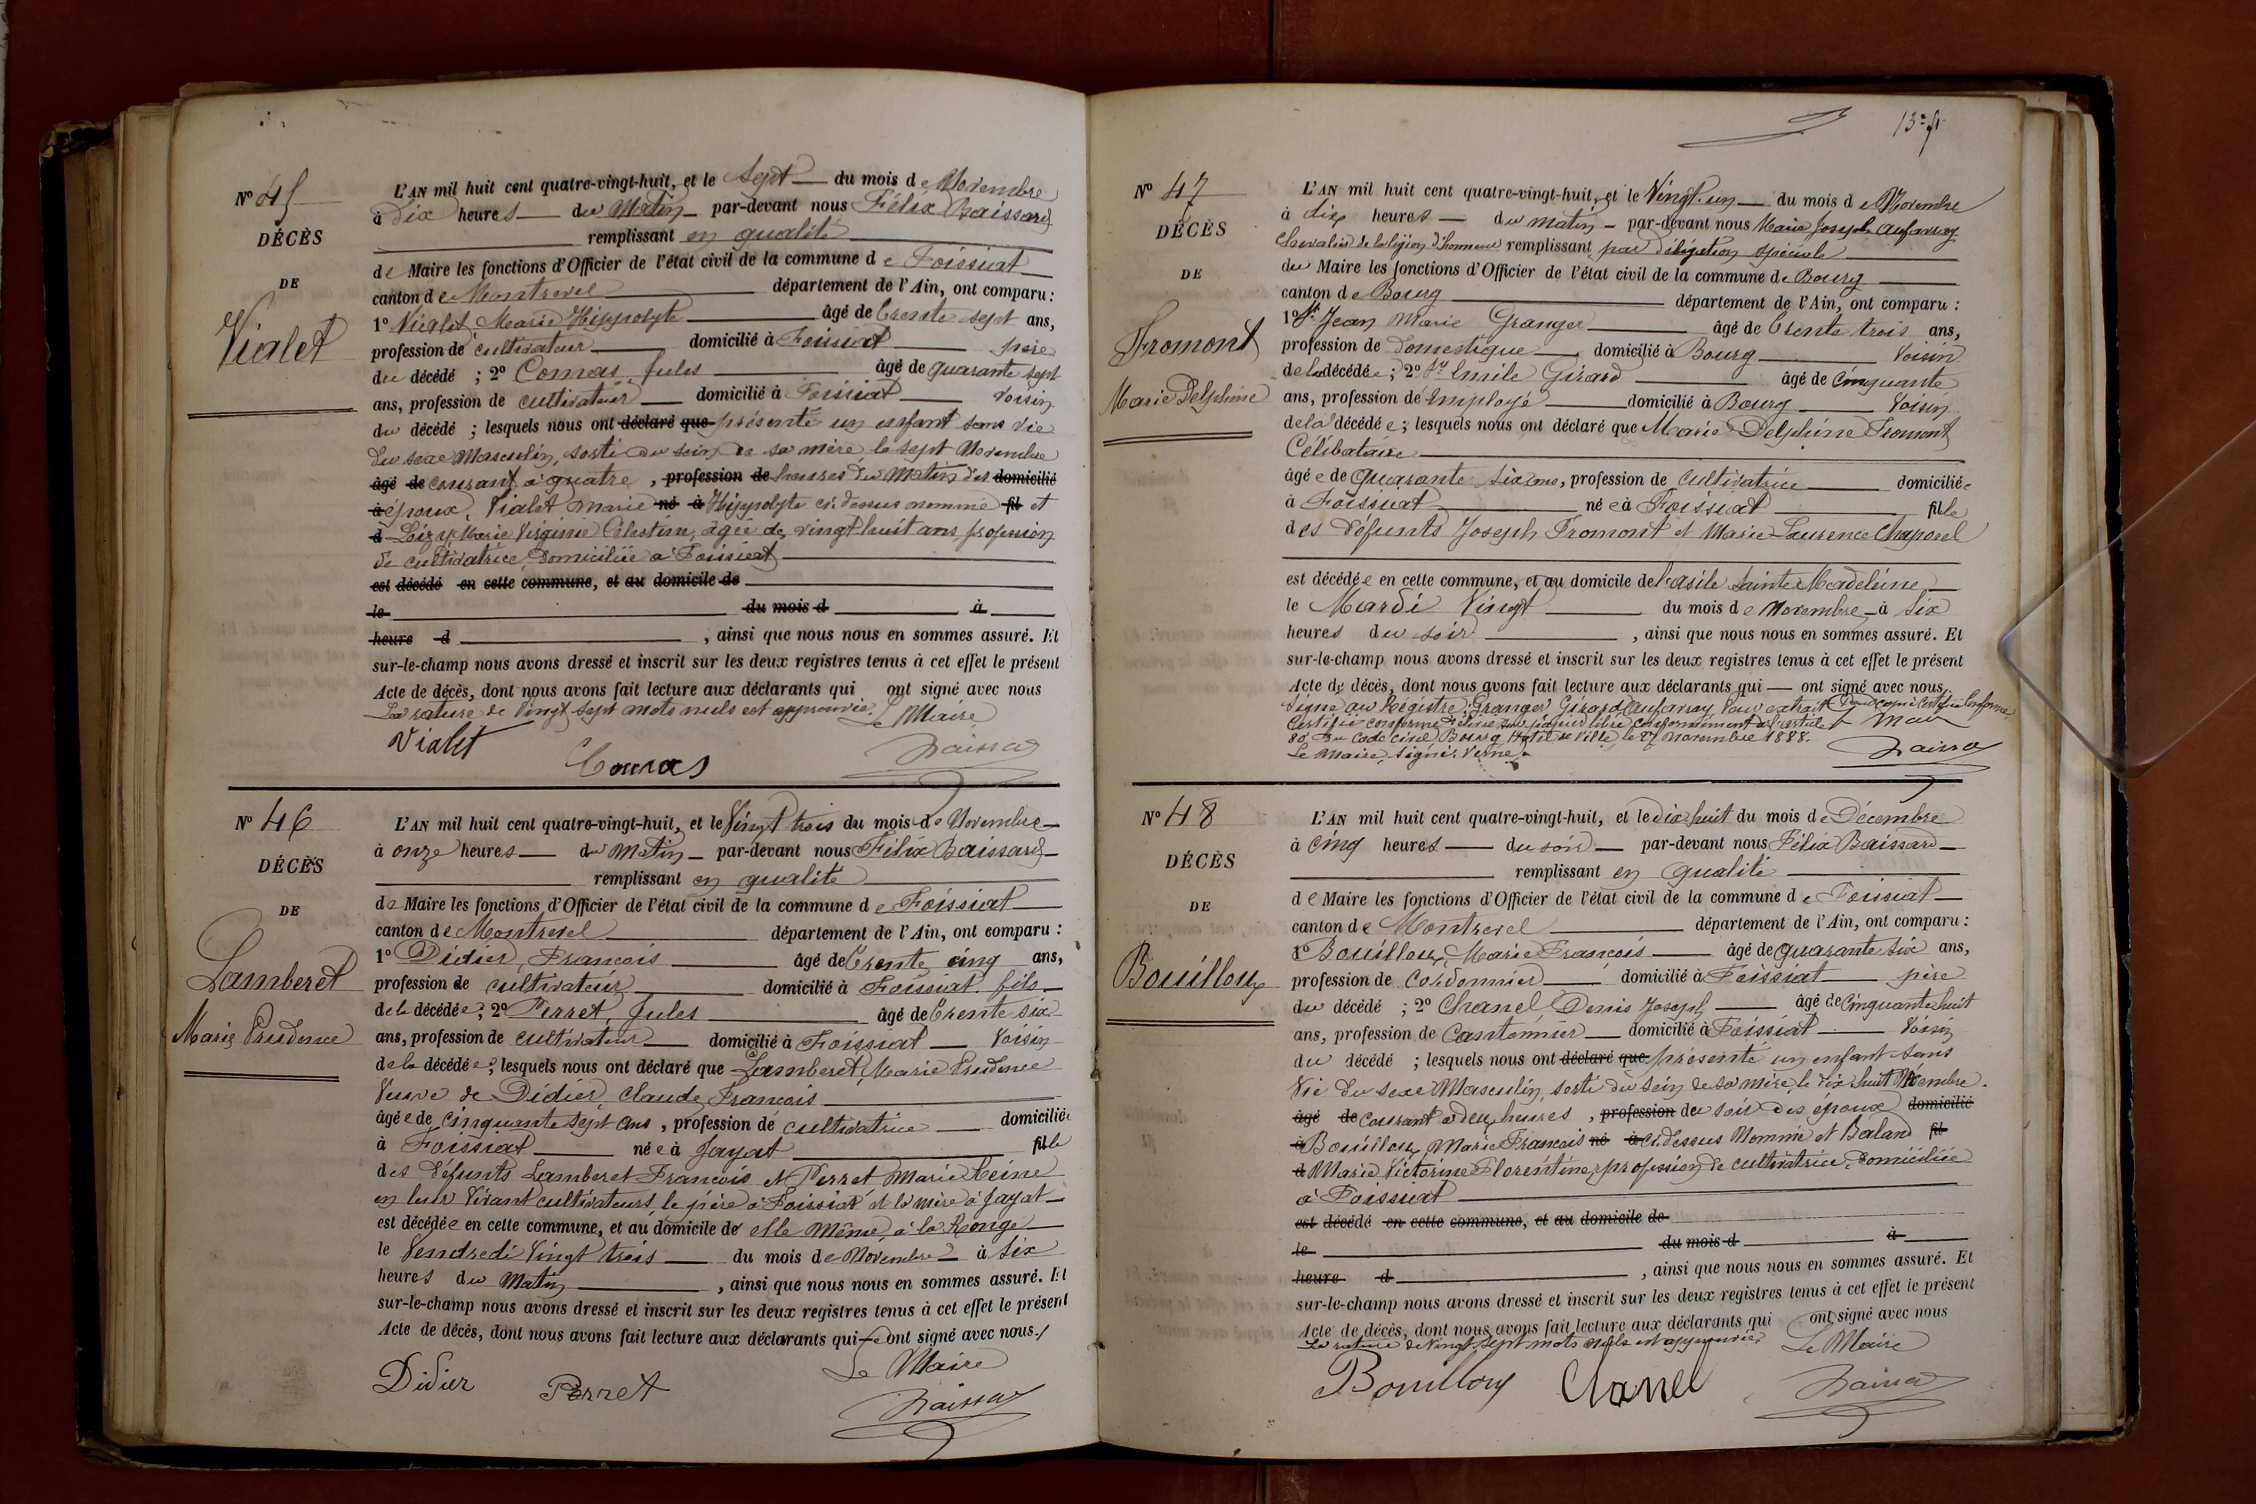 Nº 45
DÉCÈS
DE
Vialet
L'AN mil huit cent quatre-vingt-huit, et le Sept du mois de Novembre
à Dix heures du Matin par-devant nous Félix Baissard
remplissant en qualité
de Maire les fonctions d'Officier de l'état civil de la commune de Foissiat
canton de Montrevel département de l'Ain, ont comparu :
1º Vialet, Marie Hippolyte âgé de trente sept ans,
profession de cultivateur domicilié à Foissiat père
du décédé ; 2º Comas, Jules âgé de quarante sept
ans, profession de cultivateur domicilié à Foissiat voisin
du décédé ; lesquels nous ont déclaré que présenté un enfant sans vie
du sexe Masculin, sorti du sein de sa mère le sept Novembre
âgé de courant à quatre , profession de heures du Matin des domicilié
à époux, Vialet Marie né à Hippolyte ci-dessus nommé fil et
d Marie Virginie Célestine, âgée de vingt huit ans profession
de cultivatrice, domiciliée à Foissiat
est décédé en cette commune, et au domicile de
le du mois d à
heure d , ainsi que nous nous en sommes assuré. Et
sur-le-champ nous avons dressé et inscrit sur les deux registres tenus à cet effet le présent
Acte de décès, dont nous avons fait lecture aux déclarants qui ont signé avec nous
La rature de Vingt sept mots nuls est approuvée. Le Maire
Vialet
Comas
Baissard
Nº 46
DÉCÈS
DE
Lamberet
Marie Prudence
L'AN mil huit cent quatre-vingt-huit, et le Vingt trois du mois de Novembre
à onze heures du Matin par-devant nous Félix Baissard
remplissant en qualité
de Maire les fonctions d'Officier de l'état civil de la commune de Foissiat
canton de Montrevel département de l'Ain, ont comparu :
1º Didier, François âgé de trente cinq ans,
profession de cultivateur domicilié à Foissiat fils
de la décédée ; 2º Perret, Jules âgé de trente six
ans, profession de cultivateur domicilié à Foissiat Voisin
de la décédée ; lesquels nous ont déclaré que Lamberet, Marie Prudence
Veuve de Didier Claude François
âgée de cinquante sept ans , profession de cultivatrice domiciliée
à Foissiat née à Jayat fille
des défunts Lamberet François et Perret Marie Reine
en leur vivant cultivateurs, le père à Foissiat et la mère à Jayat
est décédée en cette commune, et au domicile de elle même, à la Ronge
le Vendredi Vingt trois du mois de Novembre à six
heures du Matin , ainsi que nous nous en sommes assuré. Et
sur-le-champ nous avons dressé et inscrit sur les deux registres tenus à cet effet le présent
Acte de décès, dont nous avons fait lecture aux déclarants qui ont signé avec nous
Le Maire
Didier
Perret
Baissard
Nº 47
DÉCÈS
DE
Fromont
Marie Delphine
L'AN mil huit cent quatre-vingt-huit, et le Vingt-un du mois de Novembre
à dix heures du matin par-devant nous Marie Joseph Aufavray
Chevalier de la légion d'honneur remplissant par délégation spéciale
du Maire les fonctions d'Officier de l'état civil de la commune de Bourg
canton de Bourg département de l'Ain, ont comparu :
1º Sr Jean Marie Granger âgé de trente trois ans,
profession de domestique domicilié à Bourg Voisin
de la décédée ; 2º Sr Emile Girard âgé de cinquante
ans, profession de Employé domicilié à Bourg Voisin
de la décédée ; lesquels nous ont déclaré que Marie Delphine Fromont
Célibataire
âgée de quarante six ans, profession de cultivatrice domiciliée
à Foissiat née à Foissiat fille
des défunts Joseph Fromont et Marie Laurence Chaporel
est décédée en cette commune, et au domicile de l'asile Sainte Madeleine
le Mardi Vingt du mois de Novembre à Six
heures du soir , ainsi que nous nous en sommes assuré. Et
sur-le-champ nous avons dressé et inscrit sur les deux registres tenus à cet effet le présent
Acte de décès, dont nous avons fait lecture aux déclarants qui ont signé avec nous
Signé au Registre, Granger Girard Aufavray Pour extrait Pour copie certifiée conforme
Certifié conforme Délivré sur papier libre conformément à l'article
80 du Code civil Bourg Hotel de Ville le 27 Novembre 1888.
Le Maire, Signé, Verne
Le Maire
Baissard
Nº 48
DÉCÈS
DE
Bouilloux
L'AN mil huit cent quatre-vingt-huit, et le dix huit du mois de Décembre
à Cinq heures du soir par-devant nous Félix Baissard
remplissant en qualité
de Maire les fonctions d'Officier de l'état civil de la commune de Foissiat
canton de Montrevel département de l'Ain, ont comparu :
1º Bouilloux, Marie François âgé de quarante six ans,
profession de Cordonnier domicilié à Foissiat père
du décédé ; 2º Chanel, Denis Joseph âgé de cinquante huit
ans, profession de Cantonnier domicilié à Foissiat Voisin
du décédé ; lesquels nous ont déclaré que présenté un enfant sans
Vie du sexe Masculin, sorti du sein de sa mère le dix huit
âgé de courant à deux heures , profession du soir des époux domicilié
à Bouilloux, Marie François né à ci-dessus Nommé et Baland fil
d Marie Victorine Florentine, profession de cultivatrice, domiciliée
à Foissiat
est décédé en cette commune, et au domicile de
le du mois d à
heure d , ainsi que nous nous en sommes assuré. Et
sur-le-champ nous avons dressé et inscrit sur les deux registres tenus à cet effet le présent
Acte de décès, dont nous avons fait lecture aux déclarants qui ont signé avec nous
La rature de Vingt sept mots nuls est approuvée. Le Maire
Bouilloux
Chanel
Baissard